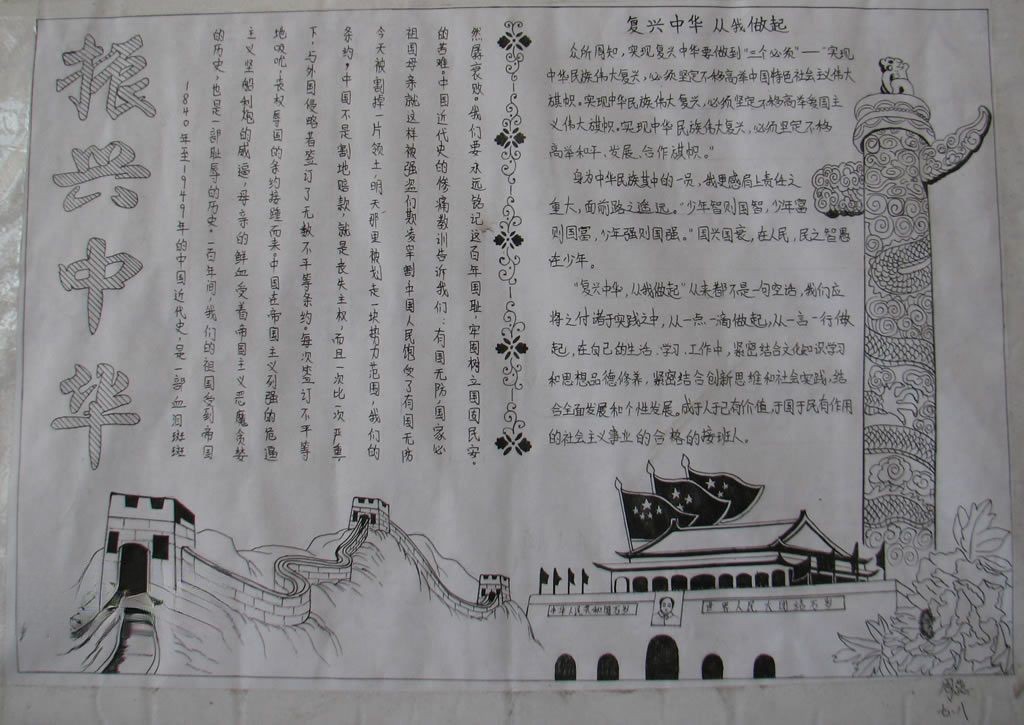 振兴中华
1840年至1949年的中国近代史,是一部血泪斑斑
的历史,也是一部耻辱的历史。一百年间,我们的祖国受到帝国
主义坚船利炮的威逼,母亲的鲜血受着帝国主义恶魔贪婪
地吸吮。丧权辱国的条约接踵而来。中国在帝国主义列强的危逼
下,与外国侵略者签订了无数不平等条约。每次签订不平等
条约,中国不是割地赔款,就是丧失主权,而且一次比一次严重,
今天被割掉一片领土,明天那里被划走一块势力范围,我们的
祖国母亲就这样被强盗们欺凌宰割中国人民饱受了有国无防
的苦难。中国近代史的惨痛教训告诉我们:有国无防,国家必
然孱衰败。我们要永远铭记这百年国耻,牢固树立国固民安。
复兴中华 从我做起
众所周知,实现复兴中华要做到“三个必须”——“实现
中华民族伟大复兴,必须坚定不移高举中国特色社会主义伟大
旗帜。实现中华民族伟大复兴,必须坚定不移高举爱国主
义伟大旗帜。实现中华民族伟大复兴,必须坚定不移
高举和平、发展、合作旗帜。”
身为中华民族其中的一员,我更感肩上责任之
重大,面前路之遥远。“少年智则国智,少年富
则国富,少年强则国强。”国兴国衰,在人民,民之智愚
在少年。
“复兴中华,从我做起”从来都不是一句空话,我们应
将之付诸于实践之中,从一点一滴做起,从一言一行做
起,在自己的生活、学习、工作中,紧密结合文化知识学习
和思想品德修养,紧密结合创新思维和社会实践,结
合全面发展和个性发展。成于人于己有价值,于国于民有作用
的社会主义事业的合格的接班人。
中华人民共和国万岁
世界人民大团结万岁